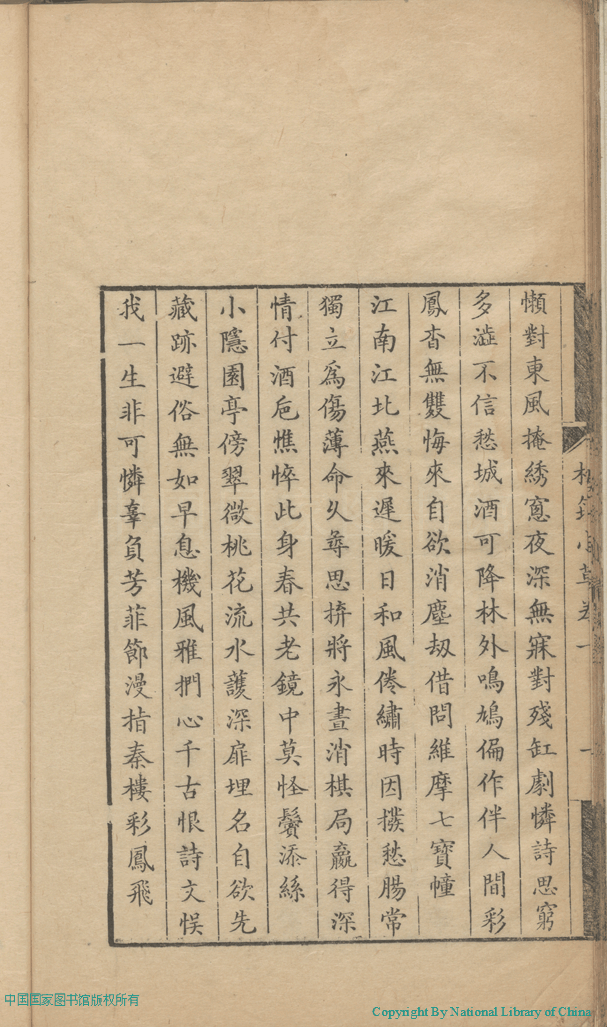 懶對東風掩綉窻夜深無寐對殘缸劇憐詩思窮
多澁不信愁城酒可降林外鳴鳩偏作伴人間彩
鳳杳無雙悔來自欲消塵刼借問維摩七寶幢
江南江北燕來遲暖日和風倦繡時因撥愁腸常
獨立爲傷薄命久尋思拚將永晝消棋局贏得深
情付酒卮憔悴此身春共老鏡中莫怪鬢添絲
小隱園亭傍翠微桃花流水護深扉埋名自欲先
藏跡避俗無如早息機風雅捫心千古恨詩文悞
我一生非可憐辜負芳菲節漫指秦樓彩鳳飛
中国国家图书馆版权所有
Copyright By National Library of China